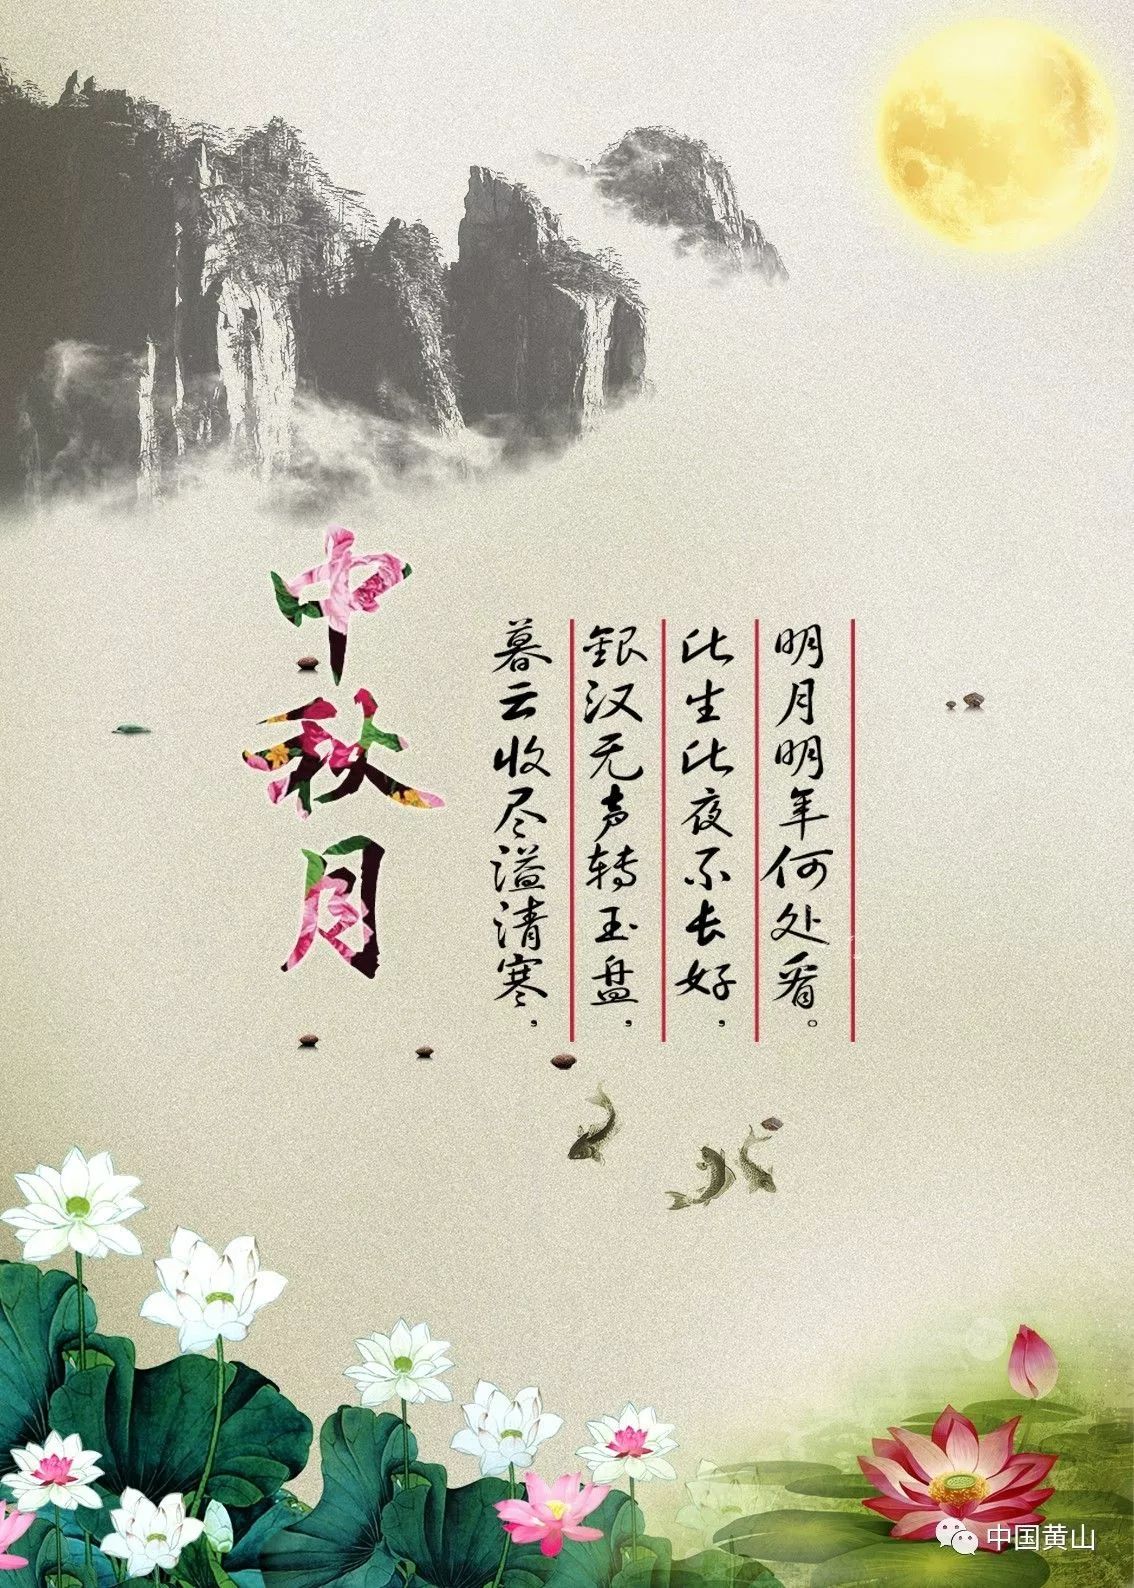 中秋月
暮云收尽溢清寒，
銀汉无声转玉盘，
此生此夜不长好，
明月明年何处看。
中国黄山